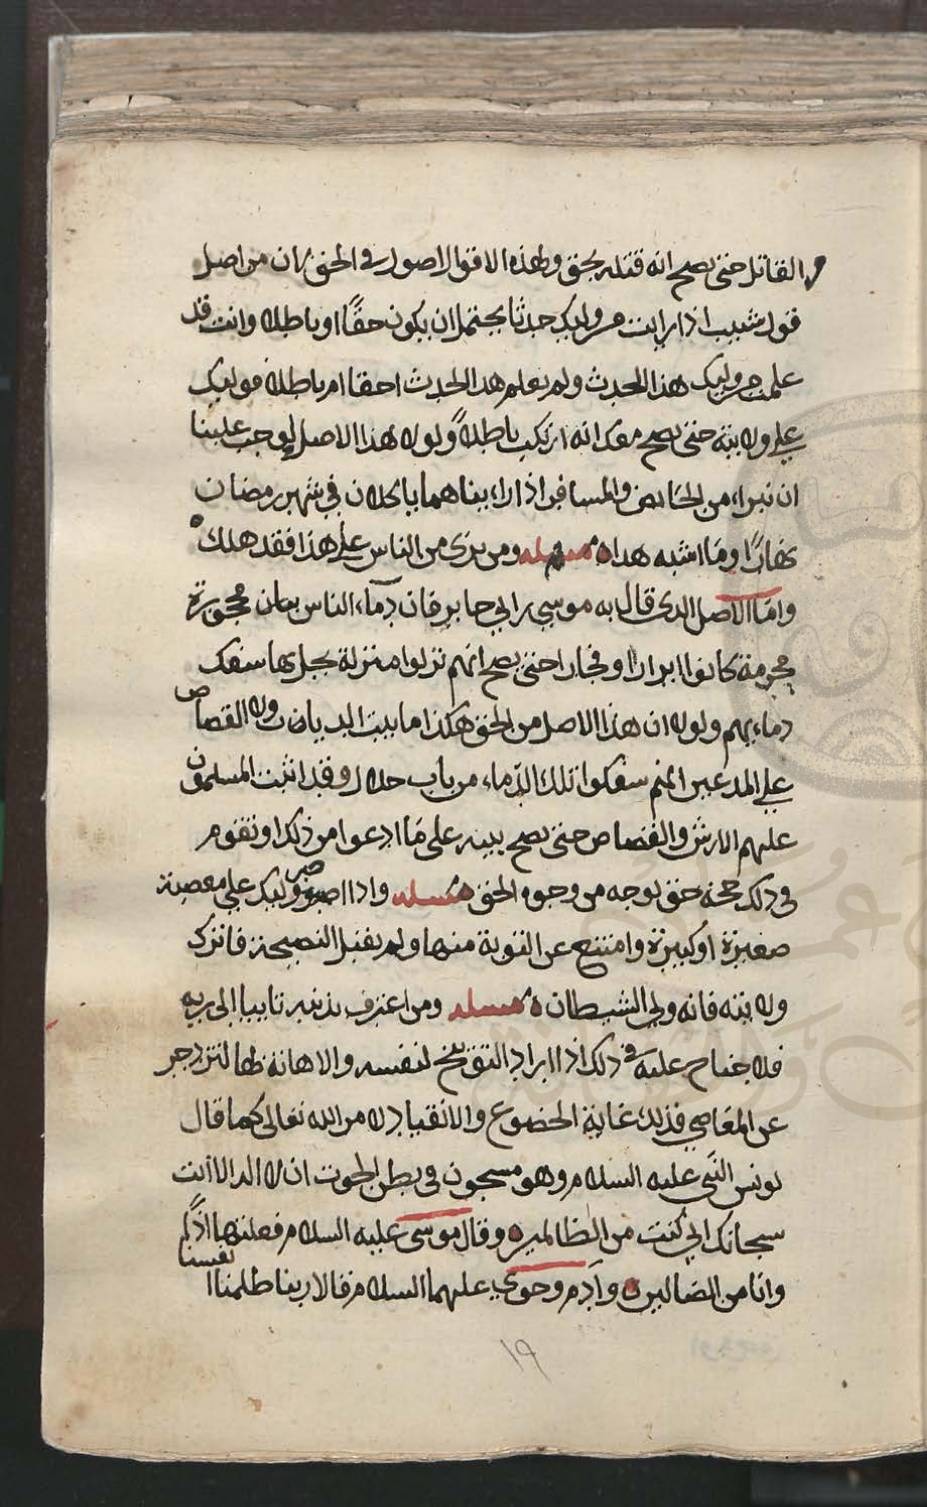 القاتل حتى يصح انه قتله بحق ولهذه الاقوال اصول في الحق كان من اصل
قول شبيب اذا رايت من وليك حدثا يحتمل ان يكون حقًا او باطلا وانت قد
علمت من وليك هذا الحدث ولم تعلم هذا الحدث احقا ام باطلا فوليك
على ولايته حتى يصح معك انه ارتكب باطلاً ولولا هذا الاصل لوجب علينا
ان نبراء من الحائض والمسافر اذا رايناهما ياكلان في شهر رمضان
نهارًا وما اشبه هذا ه مسئله ومن بري من الناس على هذا فقد هلك
واما الاصل الذي قال به موسى بن ابي جابر فان دماء الناس محجورة
محرمة كانوا ابرارا او فجارا حتى يصح انهم نزلوا منزلة يحل بها سفك
دمائهم ولولا ان هذا الاصل من الحق هكذا ما بيت البديات ولا القصاص
على المدعين انهم سفكوا تلك الدماء من باب حلال وقد اثبت المسلمون
عليهم الارش والقصاص حتى يصح بينه على ما ادعوا من ذلك او تقوم
في ذلك حجة حق بوجه من وجوه الحق ه مسئله واذا اصر وليك على معصية
صغيرة او كبيرة وامتنع عن التوبة منها ولم يقبل النصيحة فاترك
ولايته فانه ولي الشيطان ه مسئله ومن اعترف بذنبه تايبا الى ربه
فلا جناح عليه في ذلك اذا اراد التوبيخ لنفسه والاهانة لها لتزدجر
عن المعاصي فذلك غاية الخضوع والانقياد له من الله تعالى كما قال
يونس النبي عليه السلام وهو مسجون في بطن الحوت ان لا اله الا انت
سبحانك اني كنت من الظالمين ه وقال موسى عليه السلام فعلتها اذًا
وانا من الضالين ه وآدم وحوى عليهما السلام قالا ربنا ظلمنا انفسنا
١٩